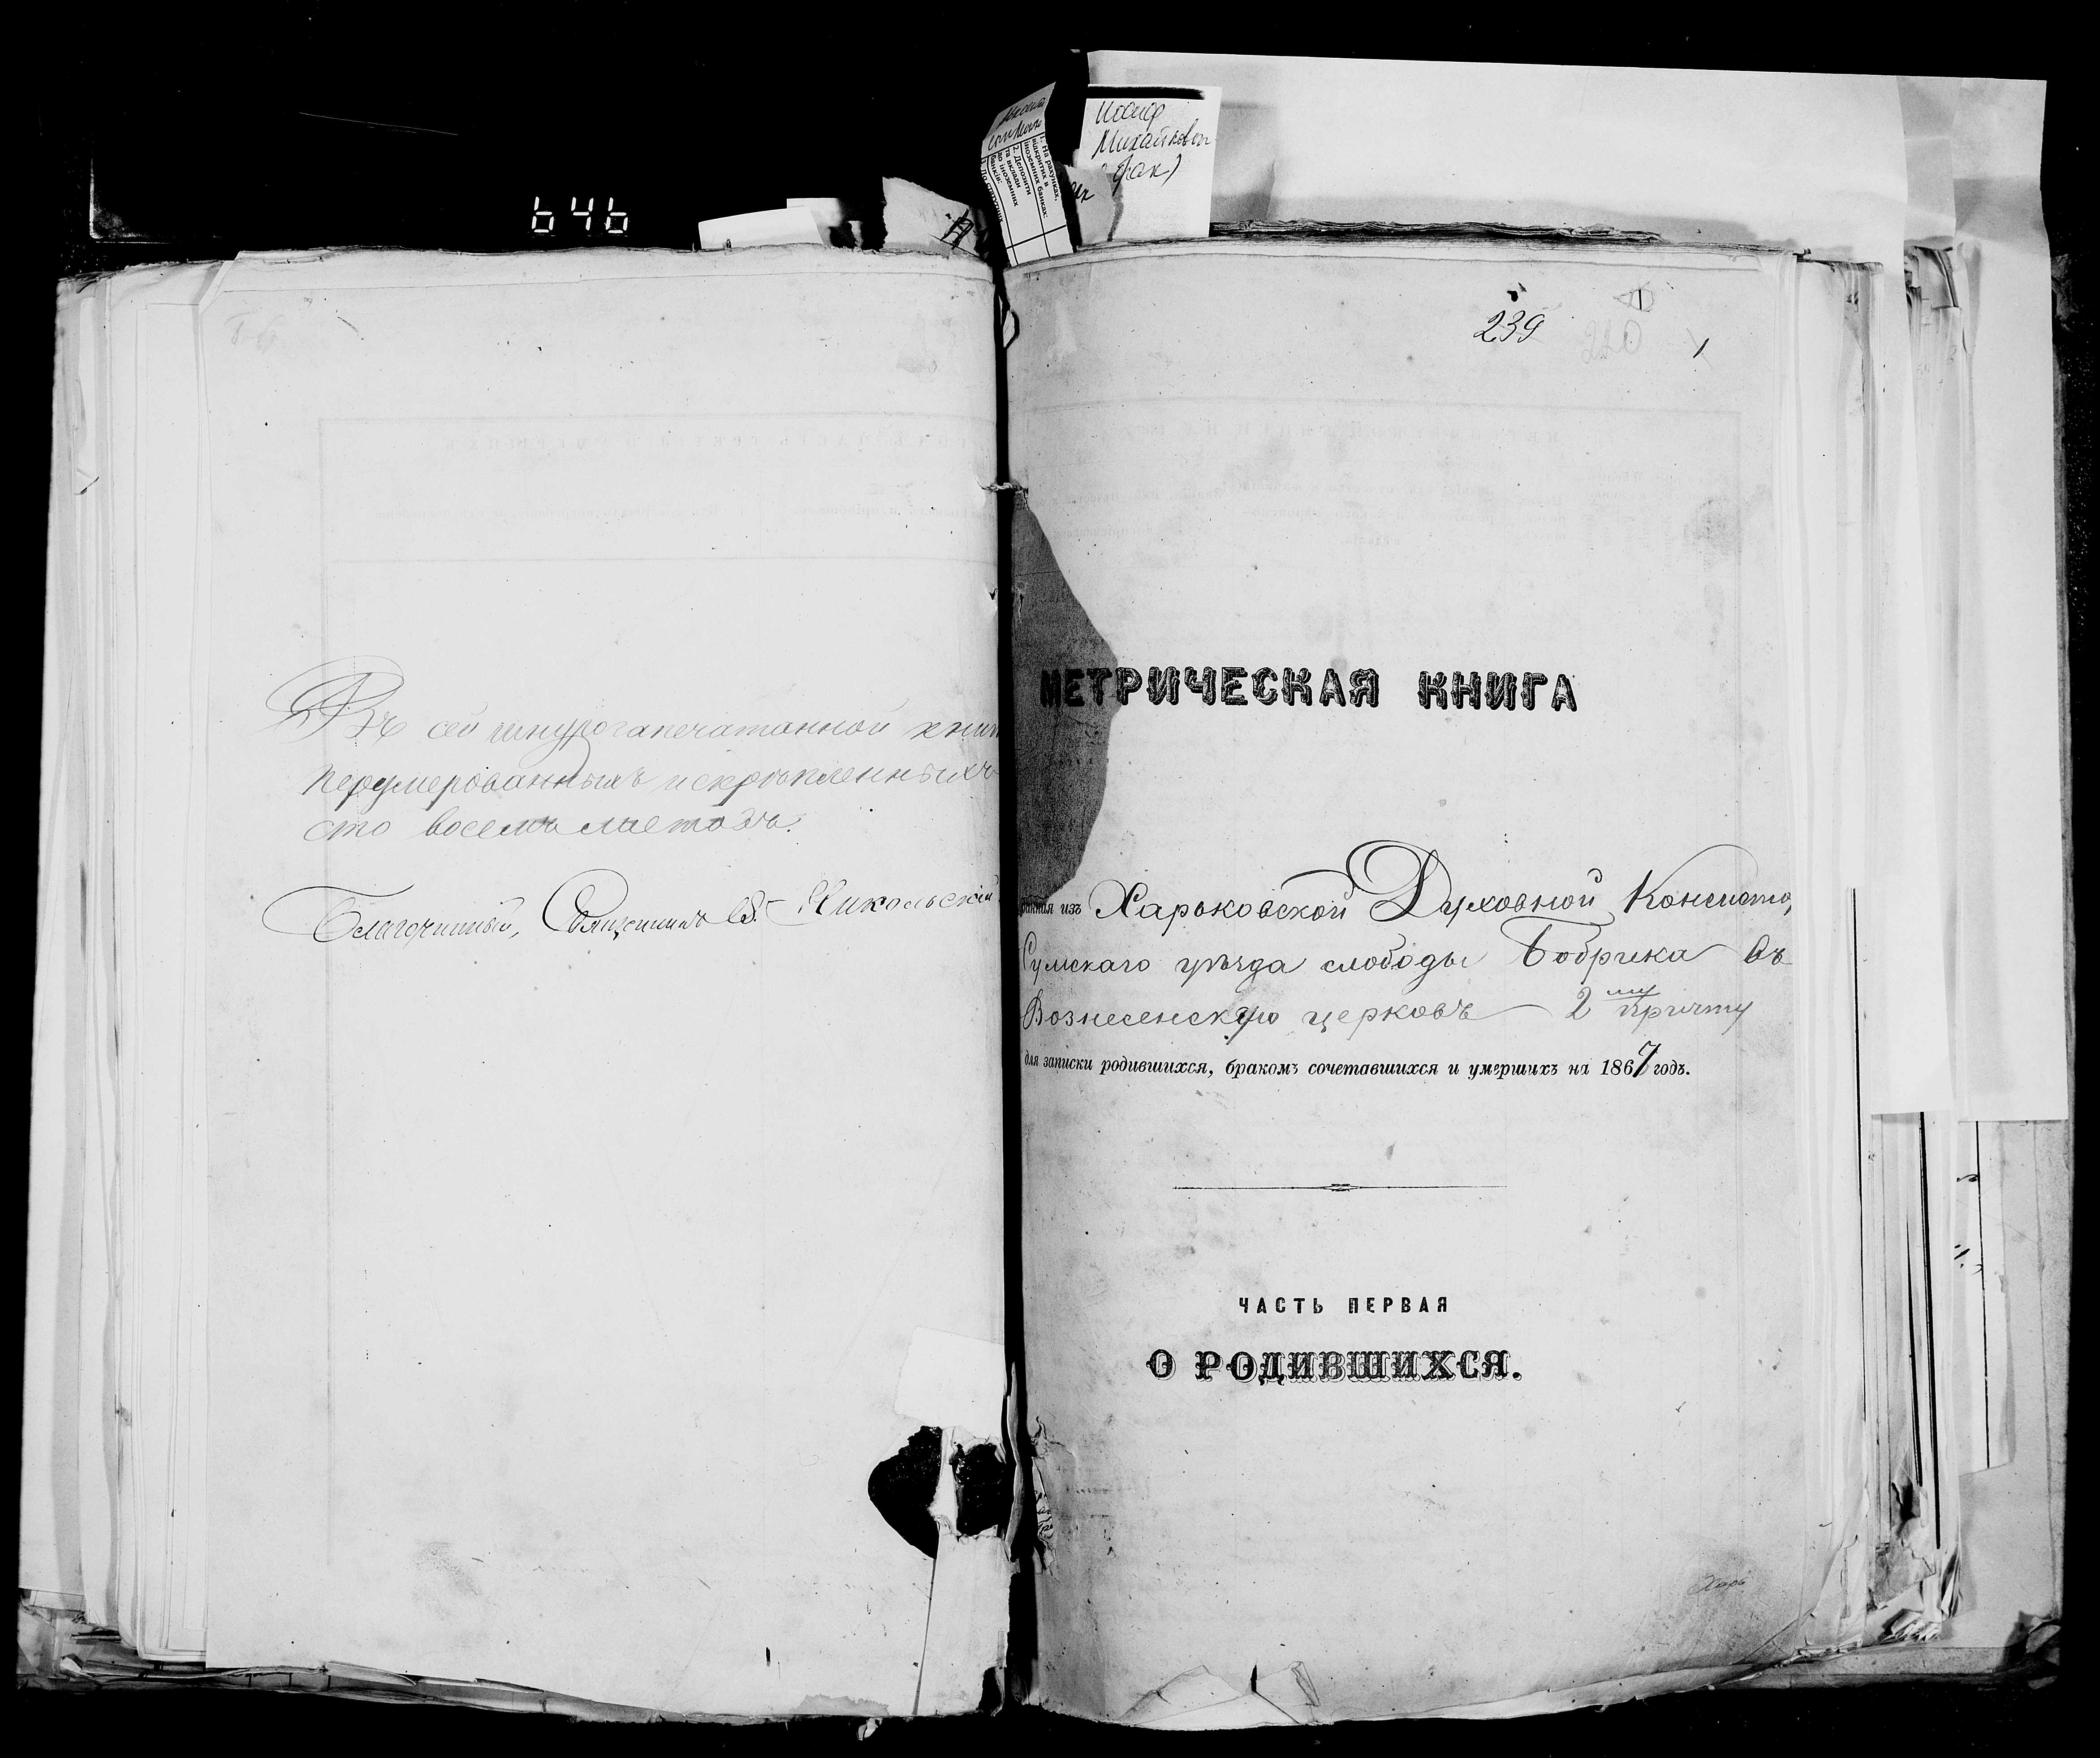 646
Михайлов
239
220
1
Въ сей шнурозапечатанной книг
перумерованныхъ и скрѣпленныхъ
сто восемь листовъ.
Благочинный, Священникъ В. Никольскій
МЕТРИЧЕСКАЯ КНИГА
данная изъ Харьковской Духовной Консисто,
Сумскаго уѣзда слободы Бобрика въ
Вознесенскую церковь 2му причту
для записки родившихся, бракомъ сочетавшихся и умершихъ на 1867 годъ.
ЧАСТЬ ПЕРВАЯ
О РОДИВШИХСЯ.
Харь